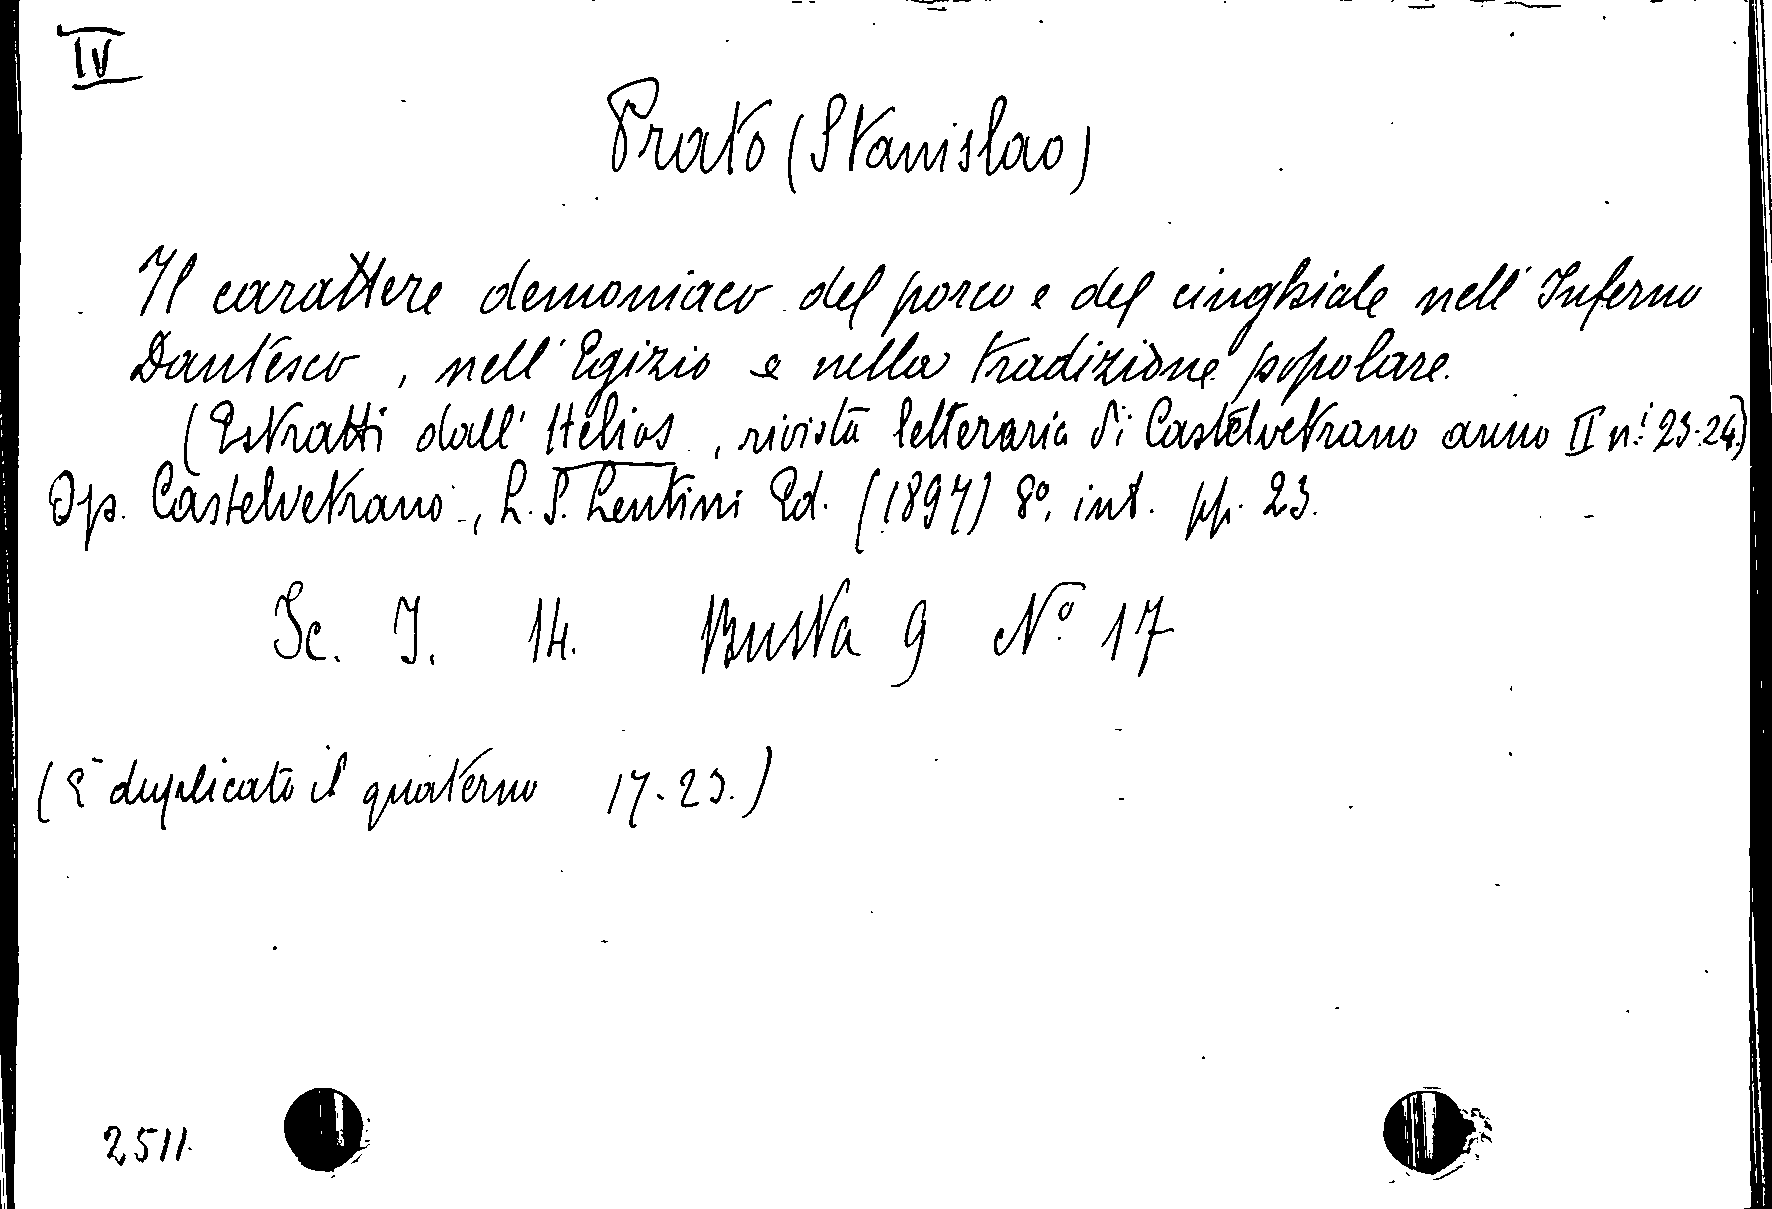 IV
Prato (Stanislao)
Il carattere demoniaco del porco e del cinghiale nell'Inferno
Dantesco, nell'Egizio e nella tradizione popolare.
(Estratti dall'Helios, rivista letteraria di Castelvetrano anno II n.i 23-24)
Op. Castelvetrano, L. S. Lentini Ed. (1897) 8º, int. pp. 23.
Sc. I. 14. Busta 9 Nº 17
(È duplicato il quaterno 17-23.)
2511